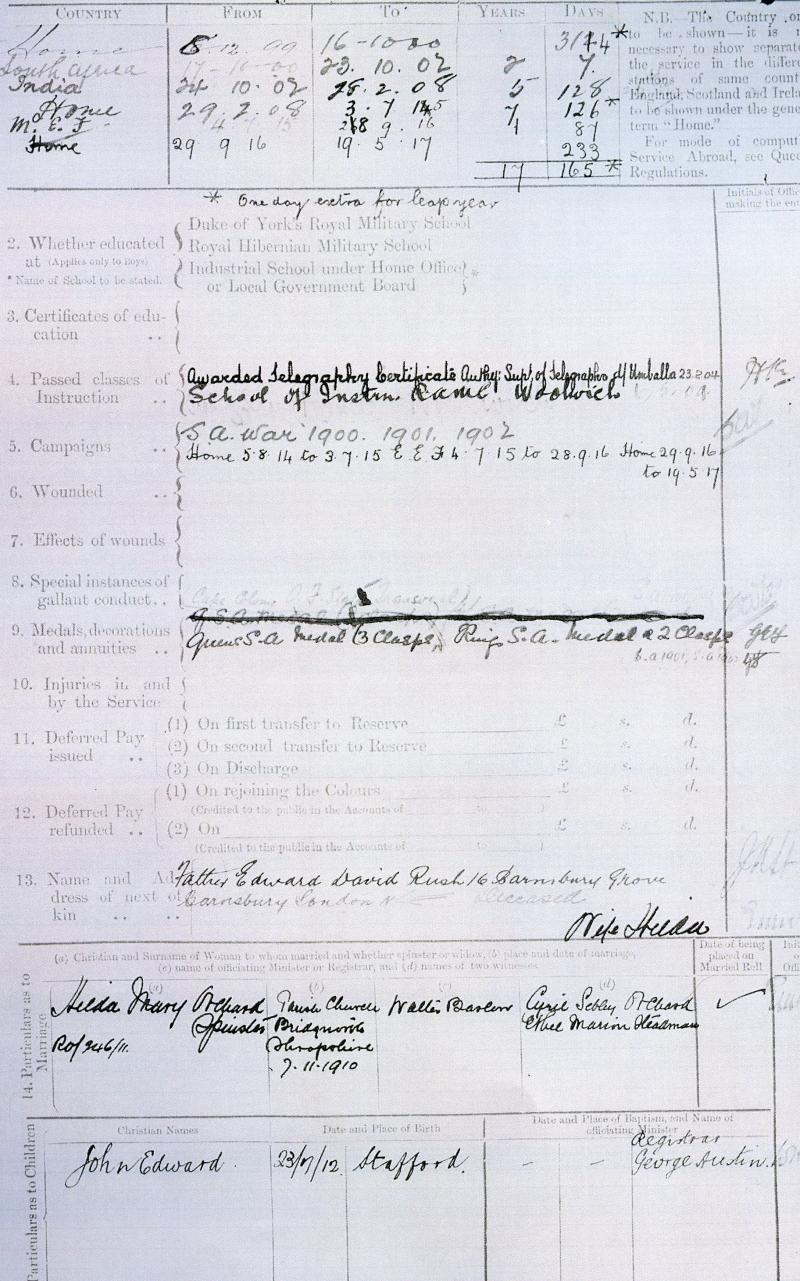 COUNTRY FROM TO YEARS DAYS
Home 8 12 99 16-10 00 314*
South Africa 17-10-00 23. 10. 02 2 7.
India 24 10. 02 28. 2. 08 5 128
Home 29. 2. 08 3. 7 15 7 126*
M. E. F 4 7 15 28 9. 16 1 87
Home 29 9 16 19. 5. 17 233
17 165*
* One day extra for leap year
N.B.—The Country
to be shown—it is
necessary to show
the service in the
stations of same
England, Scotland and
to be shown under the
term "Home."
For mode of
Service Abroad, see
Regulations.
Initials of
making the
2. Whether educated at (Applies only to Boys)
* Name of School to be stated.
Duke of York's Royal Military School
Royal Hibernian Military School
Industrial School under Home Office*
or Local Government Board
3. Certificates of edu-
cation ..
4. Passed classes of
Instruction ..
Awarded Telegraphy Certificate Authy: Supt. of Telegraphs Umballa 23.2.04
School of Instrn. RAMC. Woolwich
5. Campaigns ..
S A. War 1900. 1901. 1902
Home 5.8.14 to 3.7.15 E. E. F 4. 7. 15 to 28.9.16 Home 29.9.16
to 19.5.17
6. Wounded ..
7. Effects of wounds
8. Special instances of
gallant conduct ..
9. Medals, decorations
and annuities
Queens S.A Medal (3 Clasps) Kings S.A. Medal & 2 Clasps
10. Injuries in and
by the Service
11. Deferred Pay
issued ..
(1) On first transfer to Reserve £ s. d.
(2) On second transfer to Reserve £ s. d.
(3) On Discharge £ s. d.
12. Deferred Pay
refunded ..
(1) On rejoining the Colours £ s. d.
(Credited to the public in the Accounts of to )
(2) On £ s. d.
(Credited to the public in the Accounts of to )
13. Name and Ad
dress of next of
kin .. ..
Father Edward David Rush 16 Barnsbury Grove
Barnsbury London N Deceased
Wife Hilda
14. Particulars as to Marriage
(a) Christian and Surname of Woman to whom married and whether spinster or widow, (b) place and date of marriage,
(c) name of officiating Minister or Registrar, and (d) names of two witnesses
Date of being
placed on
Married Roll
(a) (b) (c) (d)
Hilda Mary Orchard
Spinster
Parish Church
Bridgnorth
Shropshire
7.11.1910
Walter
Orchard
Ethel Marion
Particulars as to Children
Christian Names Date and Place of Birth Date and Place of Baptism, and Name of
officiating Minister
John Edward. 23/7/12 Stafford. – – Registrar
George Austin.